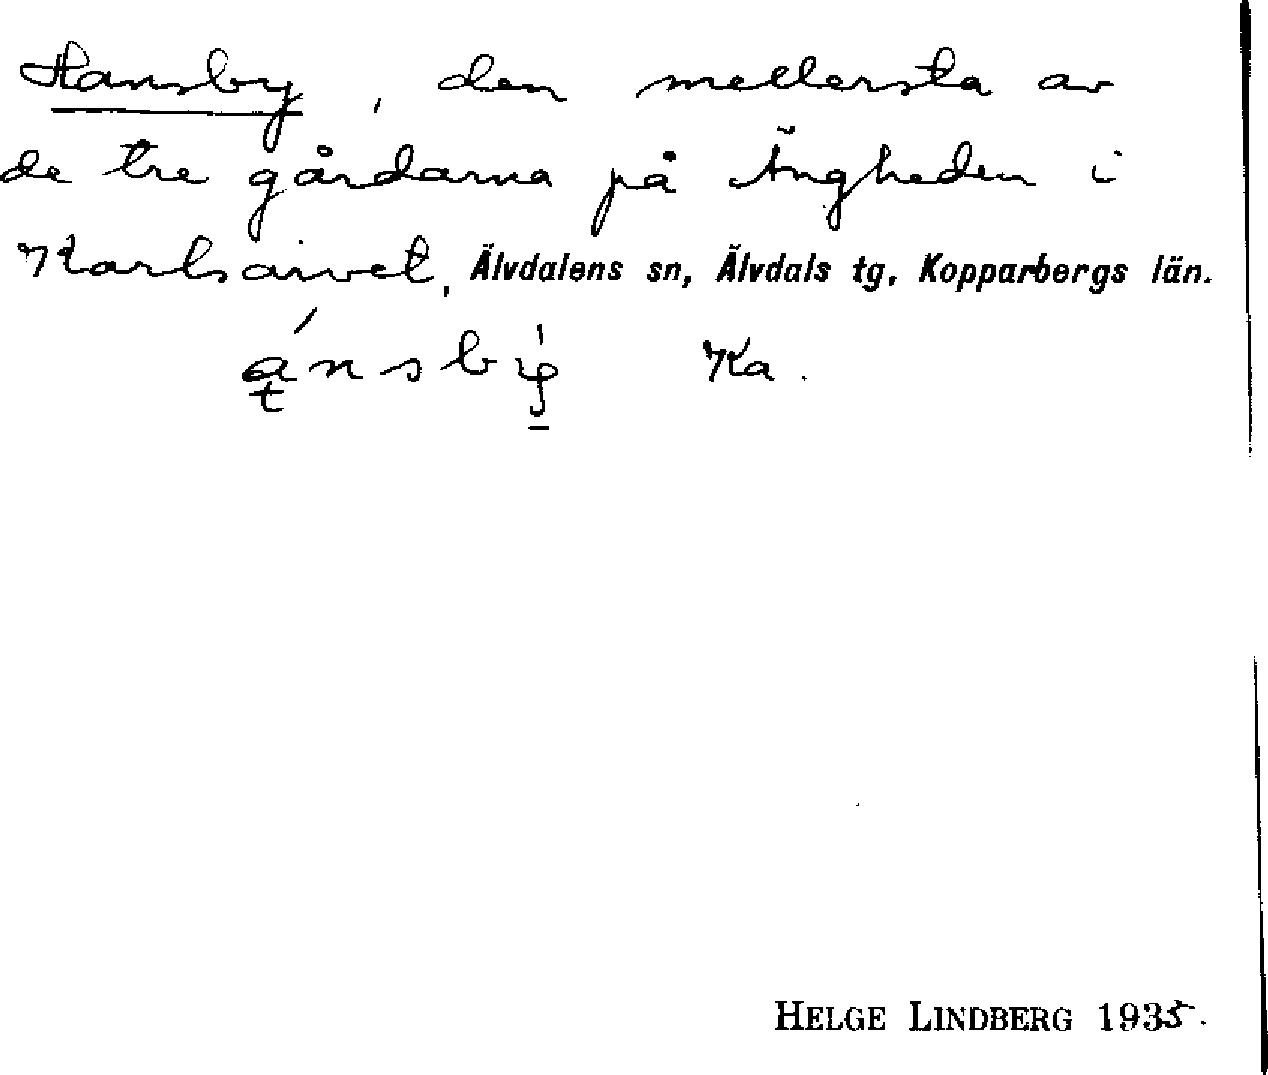 Hansby, den mellersta av
de tre gårdarna på Ängheden i
Karlsarvet, Älvdalens sn, Älvdals tg, Kopparbergs län.
Ka.
HELGE LINDBERG 1935.